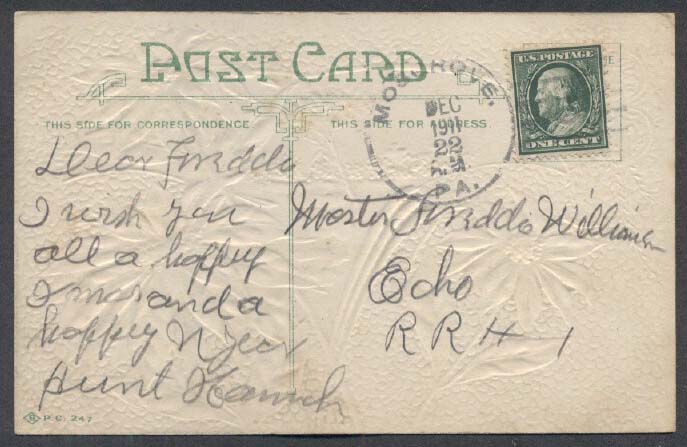 POST CARD
THIS SIDE FOR CORRESPONDENCE
THIS SIDE FOR ADDRESS
MOSGROVE,
DEC
1911
22
PA.
U.S. POSTAGE
ONE CENT
Dear Freddo
I wish you
all a happy
X mas and a
happy N year
Aunt Hannah
Master Freddo Williams
Echo
R R # 1
P.C. 247